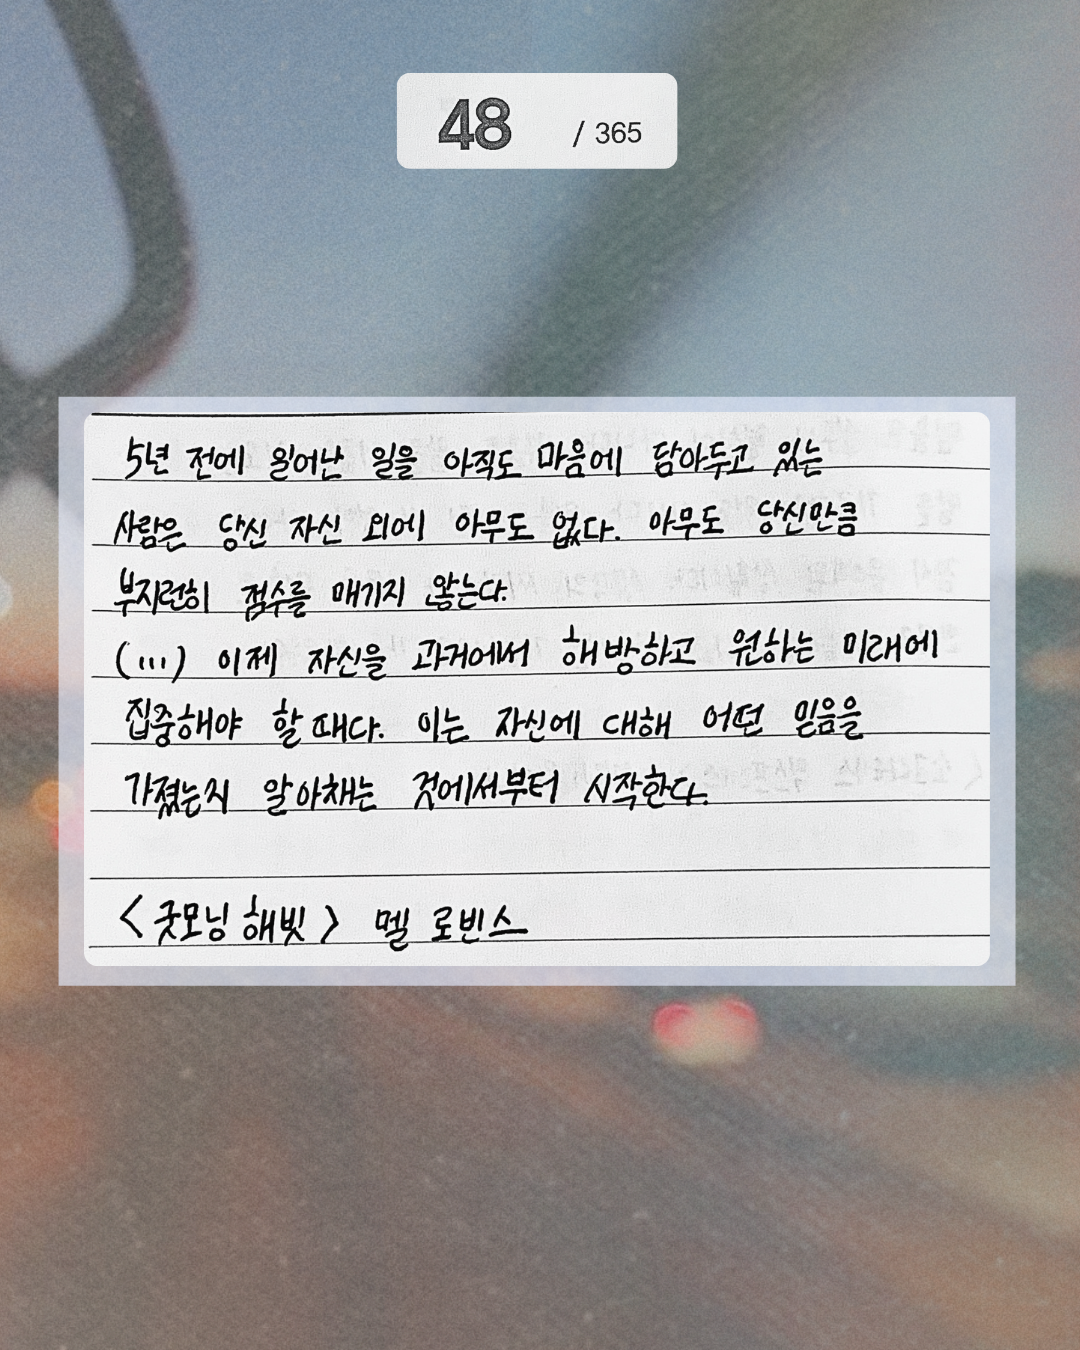 48 / 365
5년 전에 일어난 일을 아직도 마음에 담아두고 있는
사람은 당신 자신 외에 아무도 없다. 아무도 당신만큼
부지런히 점수를 매기지 않는다.
(...) 이제 자신을 과거에서 해방하고 원하는 미래에
집중해야 할 때다. 이는 자신에 대해 어떤 믿음을
가졌는지 알아채는 것에서부터 시작한다.
<굿모닝 해빗> 멜 로빈스